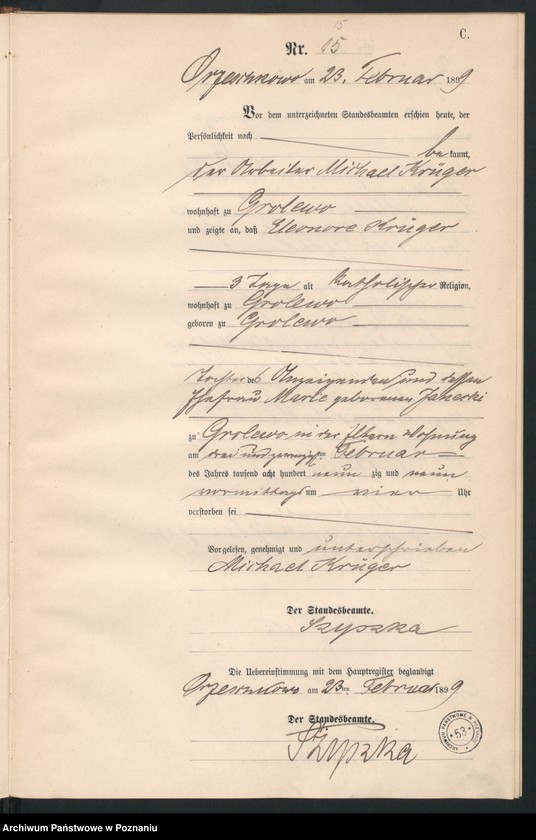 C.
15
Nr. 15
Orzeszkowo am 23. Februar 1899
Vor dem unterzeichneten Standesbeamten erschien heute, der
Persönlichkeit nach
be kannt,
der Arbeiter Michael Krüger
wohnhaft zu Grolewo
und zeigte an, daß Eleonore Krüger
3 Tage alt katholischer Religion,
wohnhaft zu Grolewo
geboren zu Grolewo
Tochter des Anzeigenden und dessen
Ehefrau Marie geborenen Janecki
zu Grolewo in der Eltern Wohnung
am drei und zwanzigsten Februar
des Jahres tausend acht hundert neun zig und neun
vormittags um vier Uhr
verstorben sei
Vorgelesen, genehmigt und unterschrieben
Michael Krüger
Der Standesbeamte.
Szyszka
Die Uebereinstimmung mit dem Hauptregister beglaubigt
Orzeszkowo am 23ten Februar 1899
Der Standesbeamte.
Szyszka
ARCHIWUM PAŃSTWOWE W POZNANIU
53
Archiwum Państwowe w Poznaniu